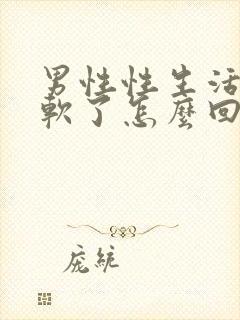 男性性生活
軟了怎麼回
庞統